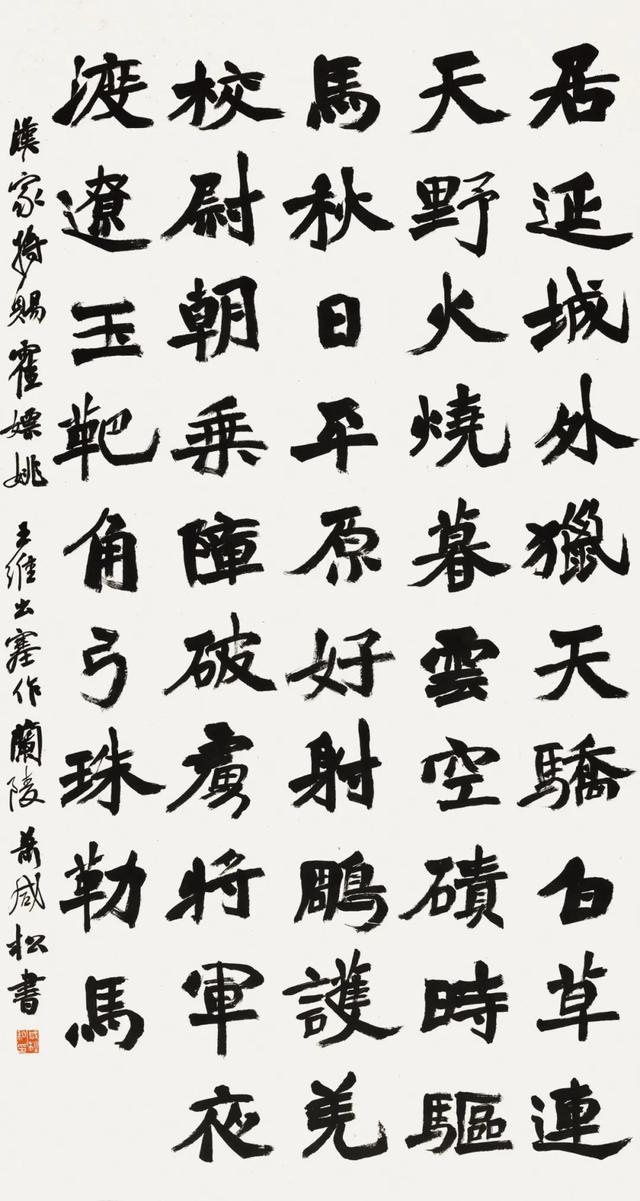 居延城外獵天驕白草連
天野火燒暮雲空磧時驅
馬秋日平原好射鵰護羌
校尉朝乘障破虜將軍夜
渡遼玉靶角弓珠勒馬
漢家將賜霍嫖姚 王維出塞作蘭陵 蕭咸松書